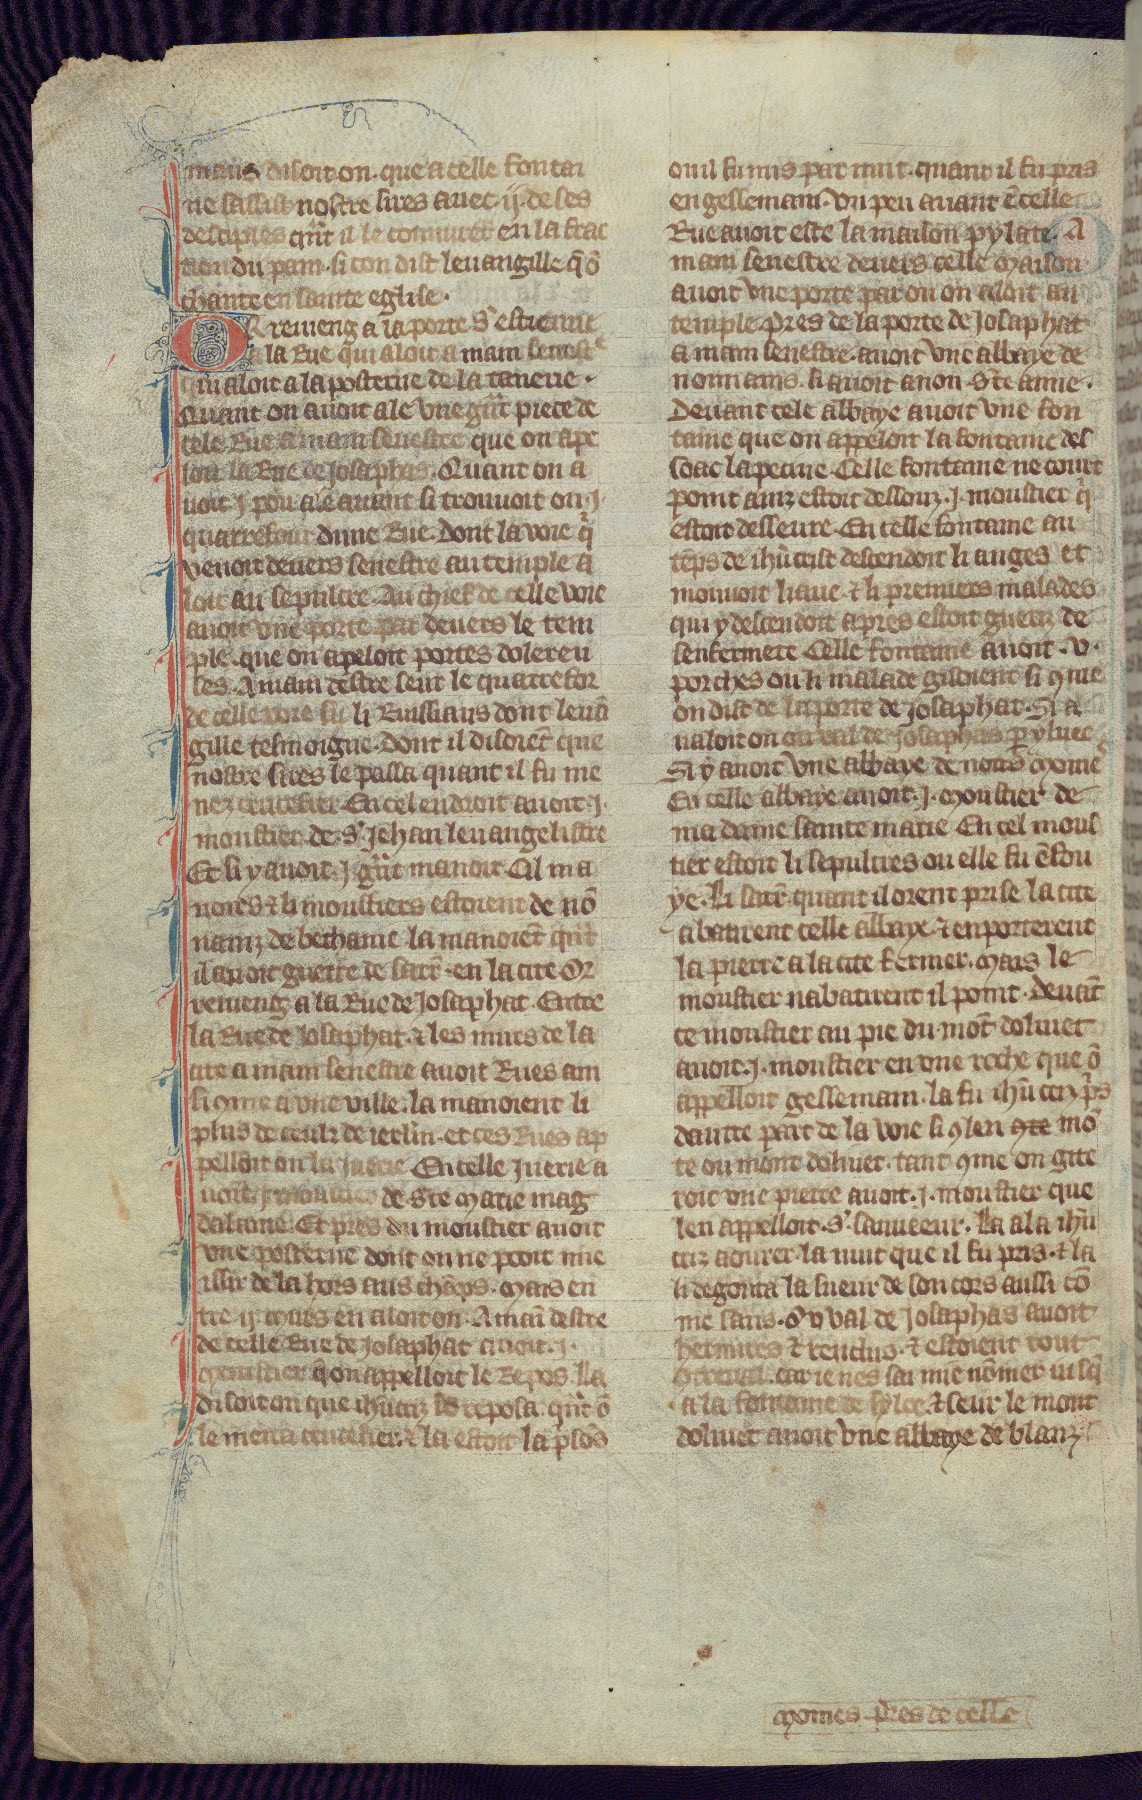 maus disoit on. que a celle fontai
ne sassist nostre sires avec .ij. de ses
desciples qñt il le connurēt en la frac
tion du pain. si con dist levangille q̄ õ
chante en sainte eglise.
OR revieng a la porte Sᵗ estievne
a la Rue qui aloit a main senestᵉ
qui aloit a la posterne de la tanerie.
Quant on avoit ale une gñt piece de
cele Rue a main senestre que on ape
loit la Rue de Josaphas. Quant on a
voit .j. pou ale avant si trouvoit on .j.
quarrefour dune Rue. Dont la voie q̇
venoit devers senestre au temple a
loit au sepulcre. Au chief de celle voie
avoit une porte par devers le tem
ple. que on apeloit portes dolereu
ses. A main destre seur le quarrefor
de celle voie fu li Ruissiaus dont levā
gille tesmoigne. dont il disoiēt que
nostre sires le passa quant il fu me
nez crucefier. En cel endroit avoit .j.
moustier de .Sᵗ. Jehan levangelistre
Et si y avoit .j. gñt manoir. Cil ma
noirs ⁊ li moustiers estoient de nō
nainz de bethanie. la manoiēt qñt
il avoit guerre de sarr̄. en la cite Or
revieng a la Rue de Josaphat. Entre
la Rue de Josaphat. ⁊ les murs de la
cite a main senestre avoit Rues ain
si ꝯme a une ville. la manoient li
plus de ceulz de ierlm̄. et ces Rues ap
pelloit on la Juerie. En celle Juerie a
voit .j. moustier de Ste Marie mag
dalaine. Et pres du moustier avoit
une posterne dont on ne pooit mie
issir de la hors aus chāps. Mais en
tre .ij. murs en aloit on. A maī destre
de celle Rue de Josaphat avoit .j.
Moustier q̄ on appelloit le Repos. La
disoit on que ihūcriz se reposa. qñt õ
le mena crucefier. ⁊ la estoit la p̄sōs
ou il fu mis par nuit. quant il fu pris
en gessemani. Un peu avant ē celle
Rue avoit este la maison pylate. A
main senestre devers celle Maison
avoit une porte par ou on aloit au
temple. Pres de la porte de Josaphat
a main senestre. avoit une abbaye de
nonnains. si avoit a non Ste anne.
Devant cele abbaye avoit une fon
taine que on appeloit la fontaine des
soac la pecine. Celle fontaine ne court
point ainz estoit dessouz .j. moustier q̇
estoit desseure. En celle fontaine au
tēps de ihūcrist descendoit li anges et
mouvoit liaue. ⁊ li premiers malades
qui y descendoit apres estoit gueriz de
senfermete. Celle fontaine avoit .v.
porches ou li malade gisoient si ꝯme
on dist de la porte de Josaphat. Si a
valoit on ou val de Josaphas. p ylucc
Si y avoit une abbaye de noirs Moinēˢ
En celle abbaye avoit .j. Moustier de
ma dame sainte marie. En cel mous
tier estoit li sepulcres ou elle fu ēfou
ye. Li sarr̄. quant il orent prise la cite
abatirent celle abbaye. ⁊ enporterent
la pierre a la cite fermer. Mais le
moustier nabatirent il point. Devāt
ce moustier au pie du mōt dolivet
avoit .j. moustier en une roche que õ
appelloit gessemani. la fu ihūcriz p̄s
dautre part de la voie si ꝯ len mō
te ou mont dolivet. tant ꝯme on gite
roit une pierre avoit .j. moustier que
len appelloit .Sᵗ. sauveeur. La ala ihū
criz aourer la nuit que il fu pris. ⁊ la
li degouta la sueur de son cors aussi cō
me sans. Ou val de Josaphas avoit
hermites ⁊ renclus. ⁊ estoient tout
contreval. car ie nes sai mie nōmer iusq̄
a la fontaine de syloe. ⁊ seur le mont
dolivet avoit une abbaye de blanz
Moines. Pres de celle